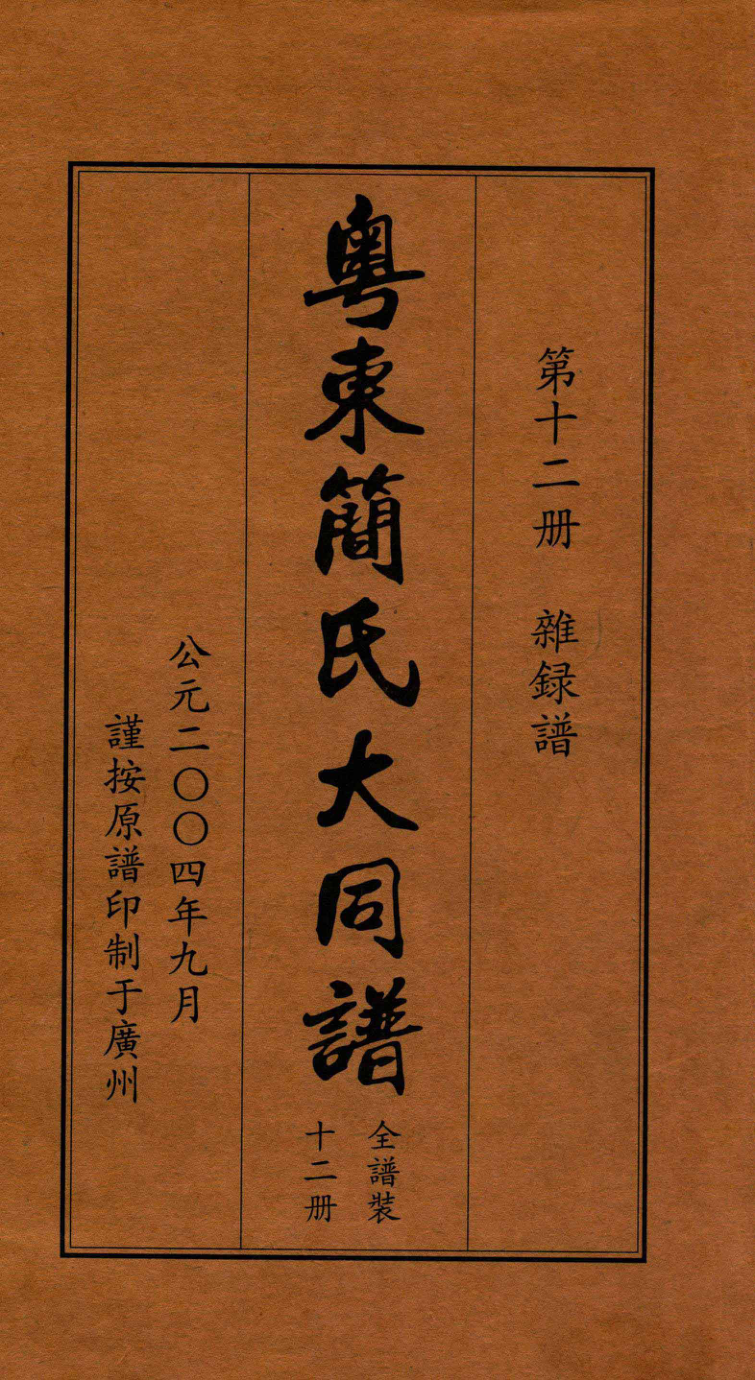 第十二册 雜録譜
粤東簡氏大同譜
全譜裝
十二册
公元二〇〇四年九月
謹按原譜印制于廣州